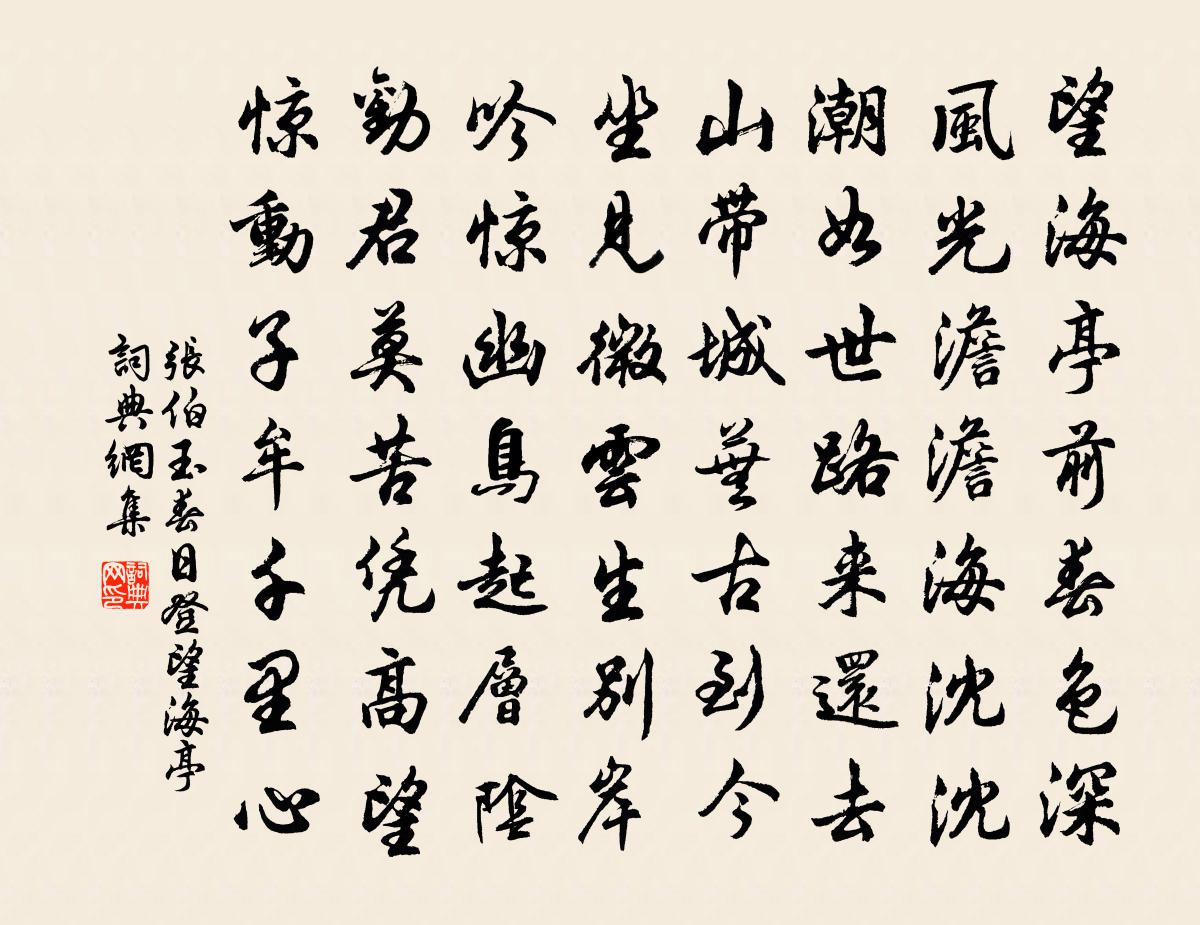 望海亭前春色深
風光澹澹海沈沈
潮如世路来還去
山帶城蕪古到今
坐見微雲生別岸
吟惊幽鳥起層陰
勸君莫苦凭高望
惊動子牟千里心
張伯玉春日登望海亭
詞典網集
詞典网印